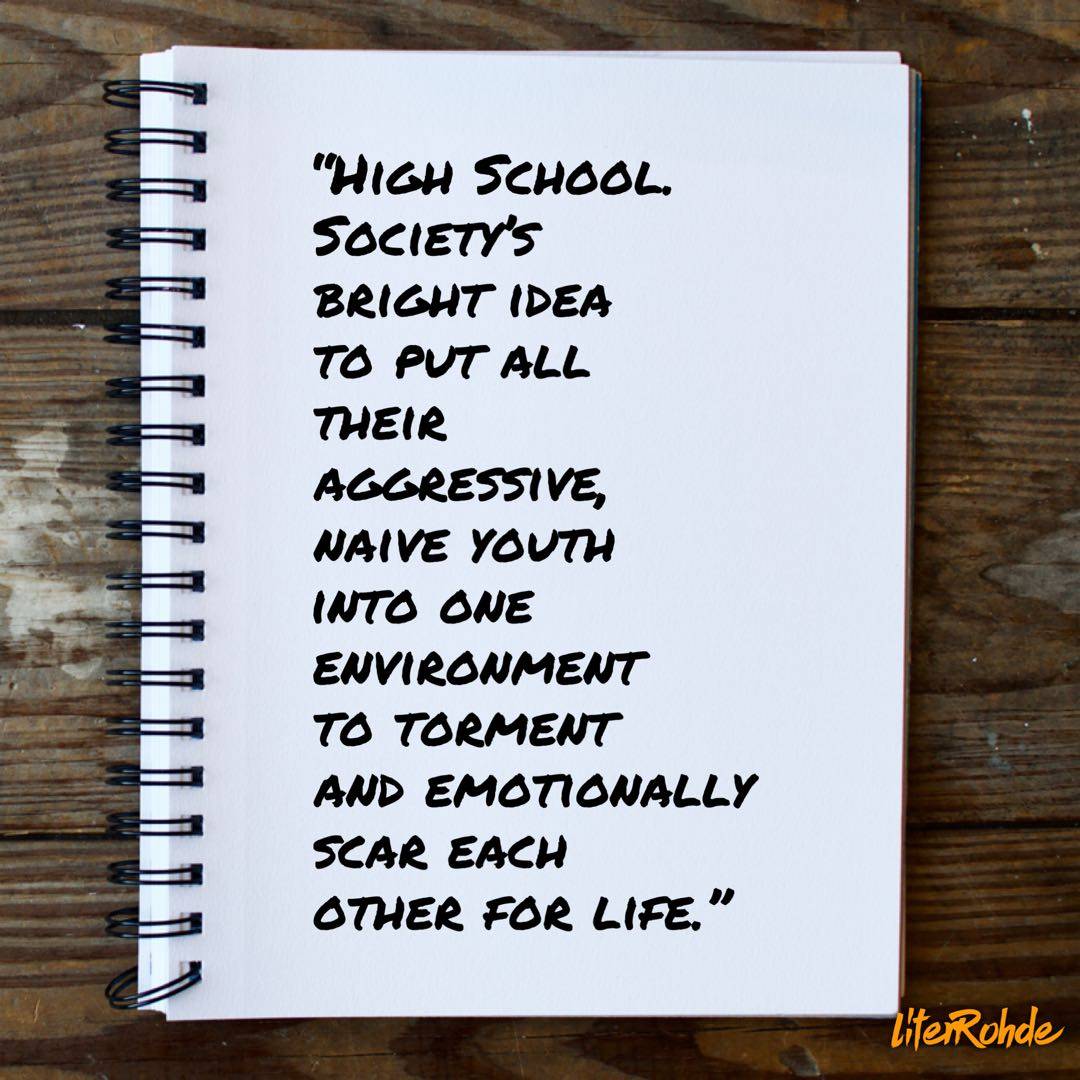 “High School.
Society's
bright idea
to put all
their
aggressive,
naive youth
into one
environment
to torment
and emotionally
scar each
other for life.”
literRohde